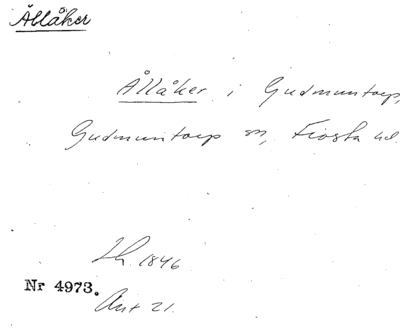 Ållåker
Ållåker i Gudmuntorp,
Gudmuntorp sn, Frosta hd.
Lh. 1846
Nr 4973.
Akt 21.